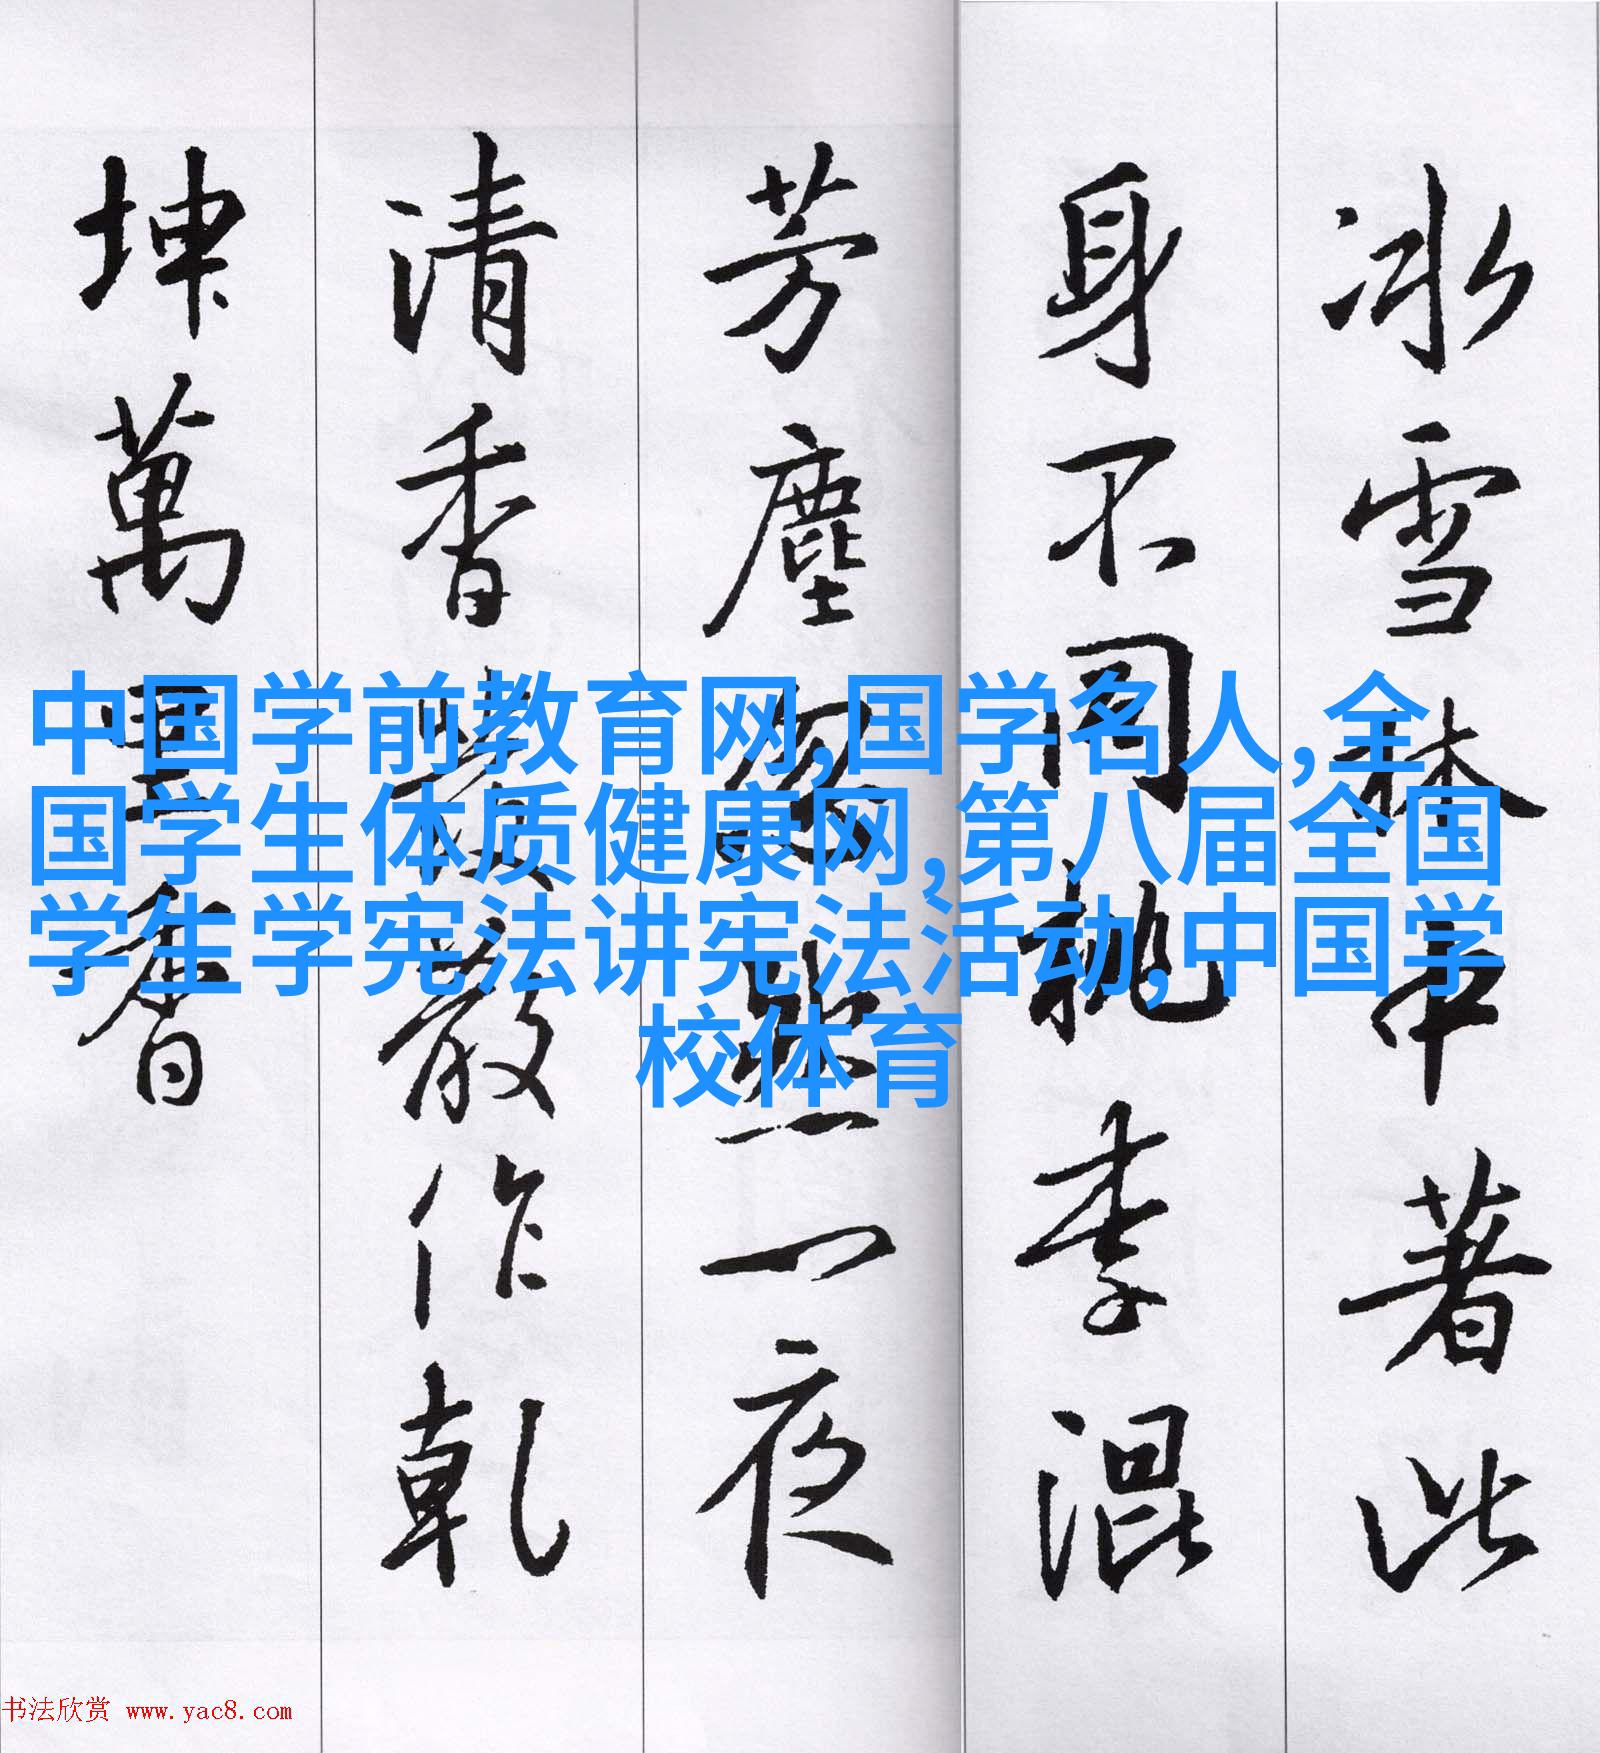 冰雪林中著此
身不同桃李混
芳塵忽然一夜
清香發散作乾
坤萬里春
中国学前教育网,国学名人,全
国学生体质健康网,第八届全国
学生学宪法讲宪法活动,中国学
校体育
书法欣赏 www.yac8.com